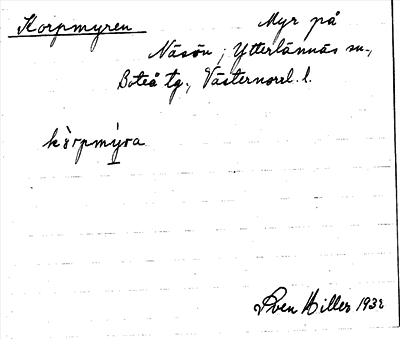 Korpmyren Myr på
Näsön, Ytterlännäs sn.,
Boteå tg., Västernorrl. l.
kòrpmýra
Sven Hiller 1932